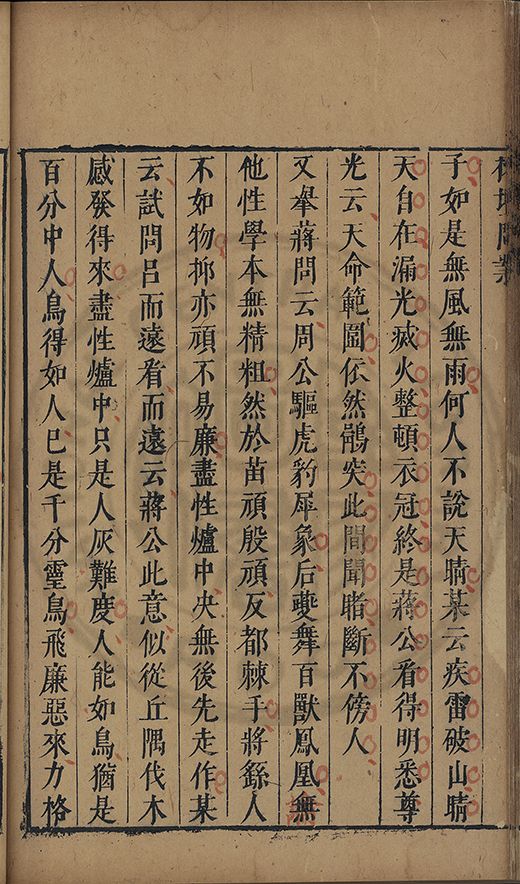 子如是無風無雨何人不說天晴某云疾雷破山晴
天自在漏光滅火整頓衣冠終是蔣公看得明悉尊
光云天命範圍依然鶻突此間聞睹斷不傍人
又舉蔣問云周公驅虎豹犀象后夔舞百獸鳳凰無
他性學本無精粗然於苗頑殷頑反都棘手將繇人
不如物抑亦頑不易廉盡性爐中央無後先走作某
云試問呂而遠看而遠云蔣公此意似從丘隅伐木
感發得來盡性爐中只是人灰難度人能如鳥猶是
百分中人鳥得如人巳是千分靈鳥飛廉惡來力格